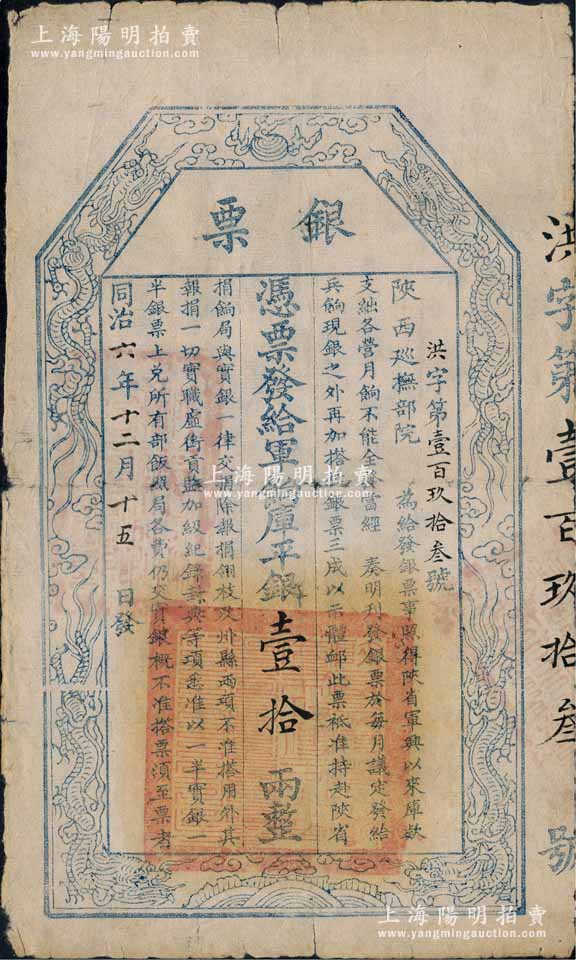 上海陽明拍賣
www.yangmingauction.com
銀票
洪字第壹百玖拾叁號
陝西巡撫部院 為給發銀票事照得陝省軍興以來庫款
支絀各營月餉不能全 當經 奏明刊發銀票於每月議定發給
兵餉現銀之外再加搭 銀票三成以示體卹此票祗准持赴陝省
憑票發給軍 庫平銀壹拾兩整
捐餉局與實銀一律交 除報捐翎枝及州縣兩項不准搭用外其
報捐一切實職虛銜貢監加級紀錄封典等項悉准以一半實銀
半銀票上兌所有部飯照局各費仍交實銀概不准搭票須至票者
同治六年十二月十五日發
洪字第壹百玖拾叁號
上海陽明拍賣
www.yangmingauction.com
上海陽明拍賣
www.yangmingauction.com